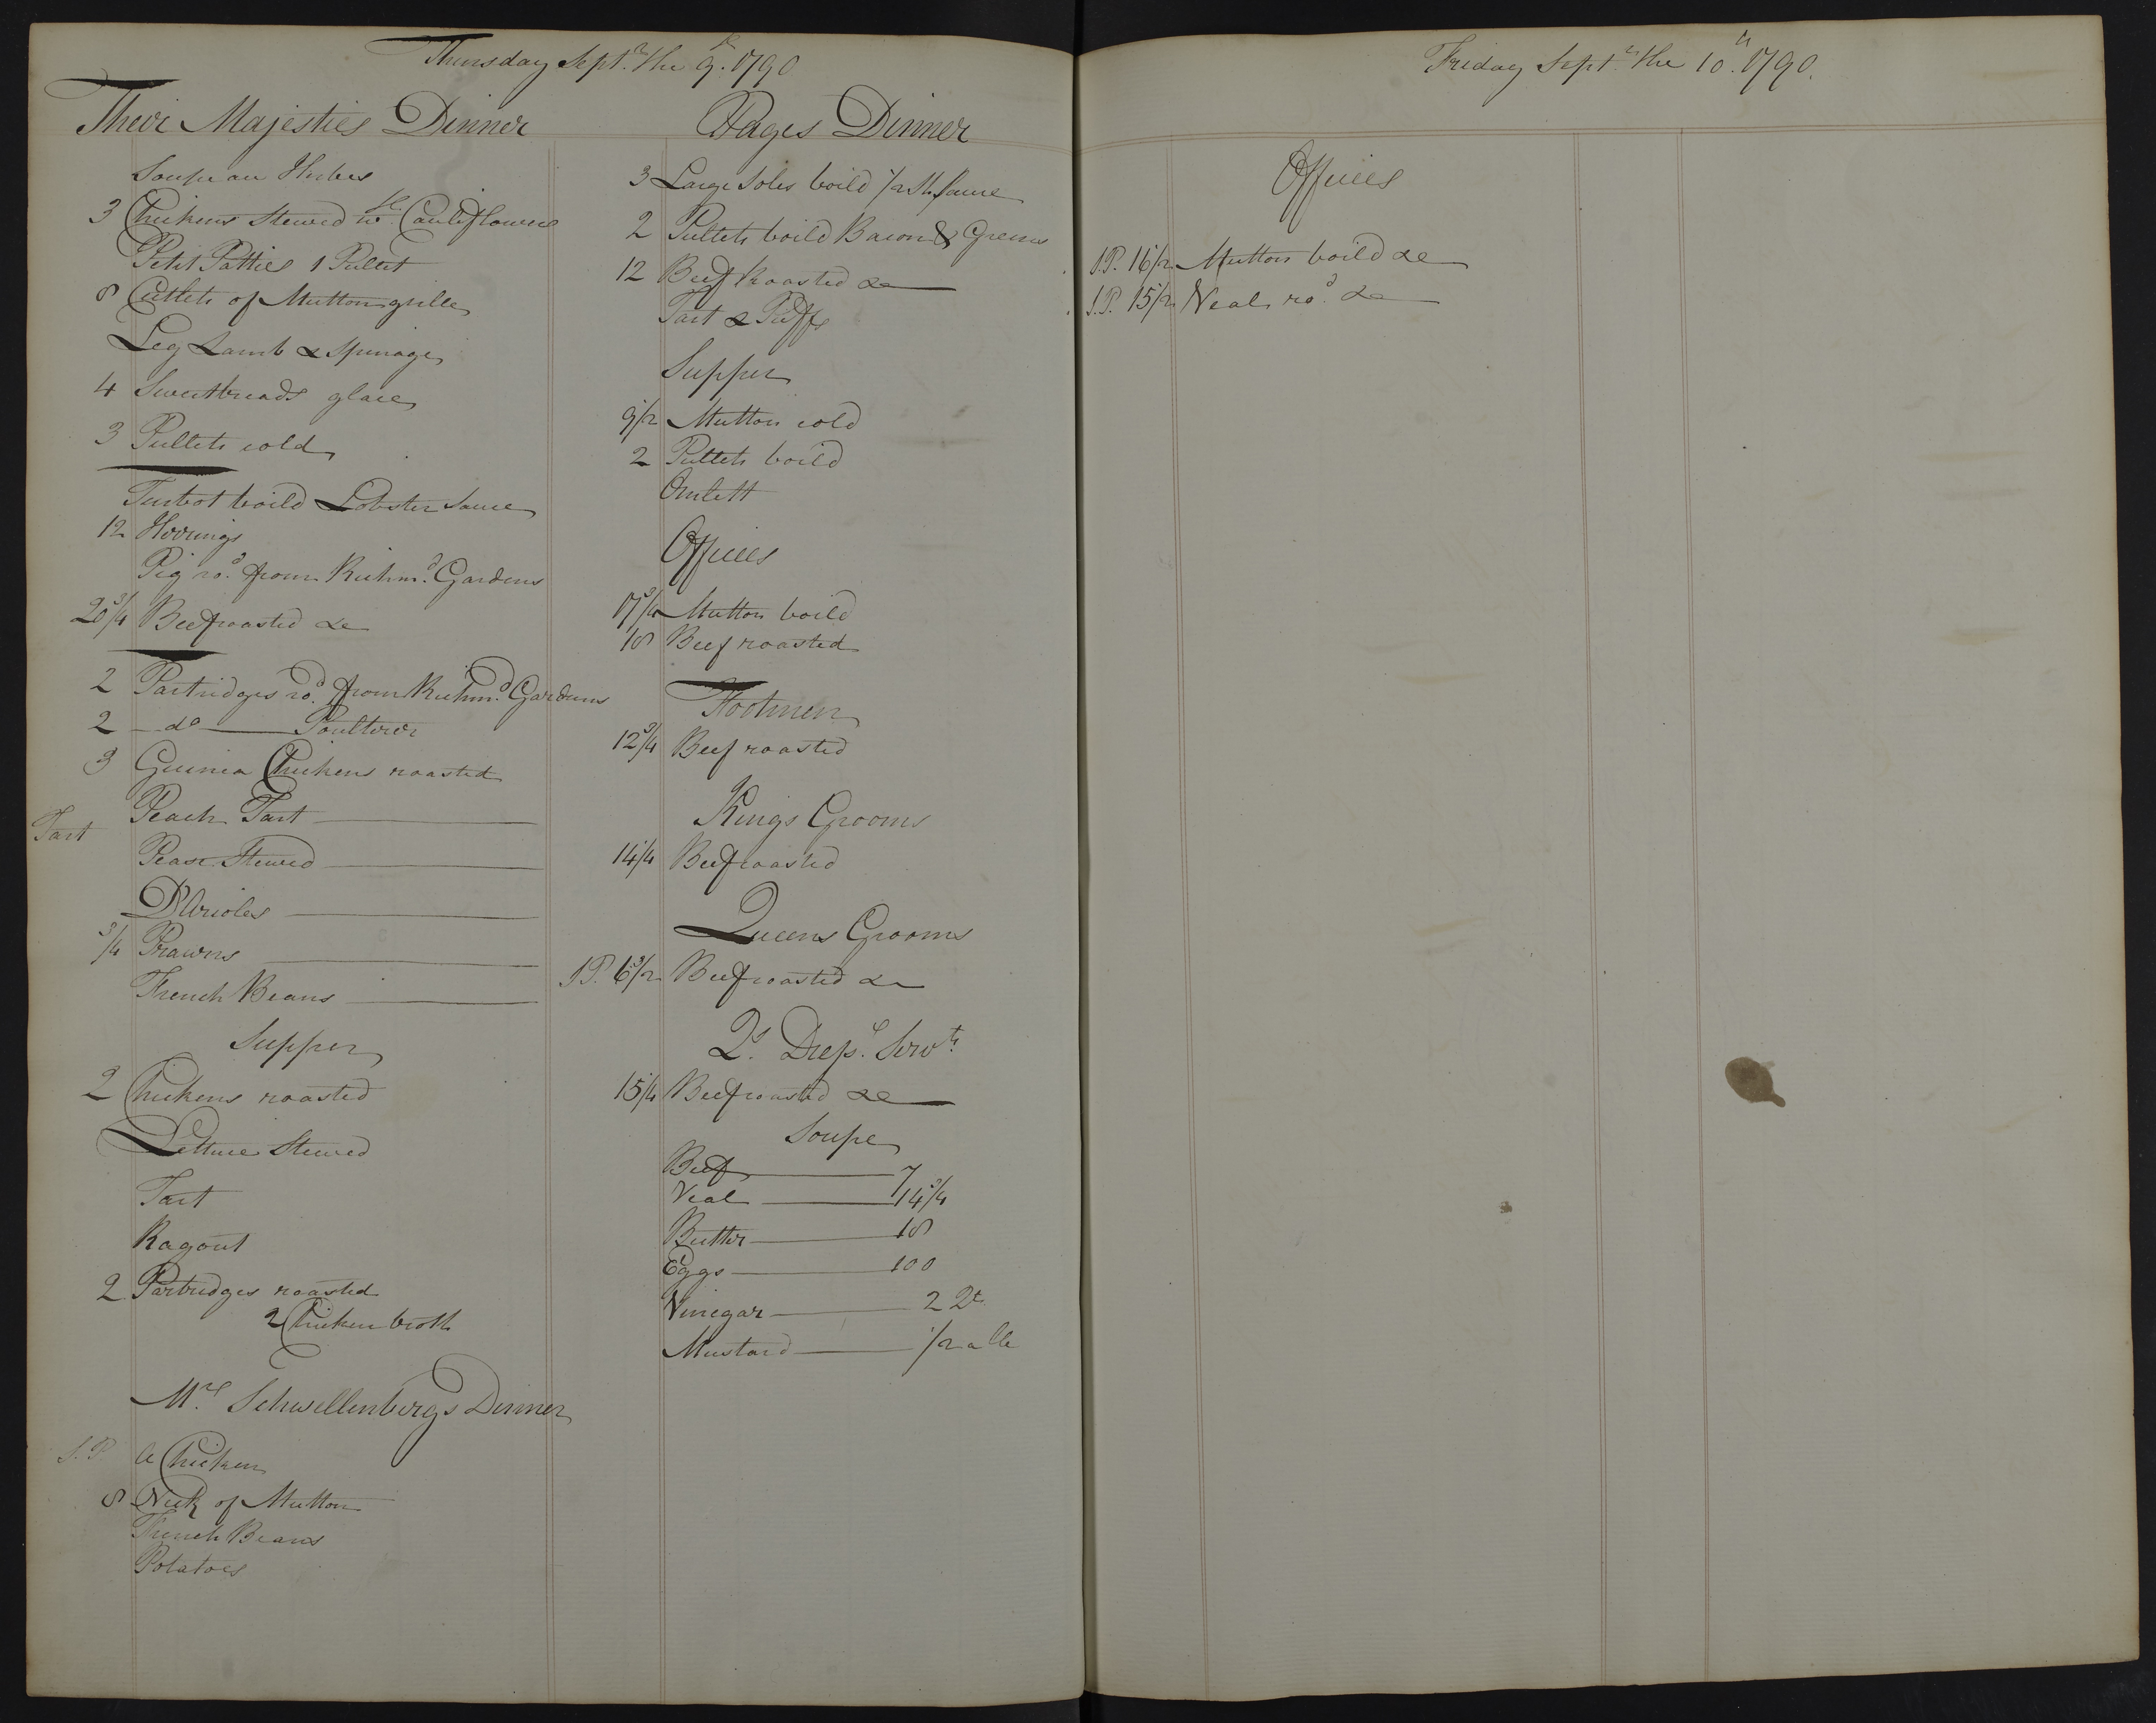 Thursday Sept.r the 9.th 1790
Their Majesties Dinner
Soupe au Herbes
3 Chickens Stewed w.th Cauliflowers
Petit Patties 1 Pullet
8 Cutlets of Mutton grille
Leg Lamb & Spinage
4 Sweetbreads glace
3 Pullets cold
Turbot boild Lobster Sauce
12 Herrings
Pig ro.d from Richm.d Gardens
20 3/4 Beef roasted &c
2 Partridges ro.d from Richm.d Gardens
2 do Poulterer
3 Guinea Chickens roasted
Tart Peach Tart
Pease Stewed
D'Arioles
3/4 Prawns
French Beans
Supper
2 Chickens roasted
Lettuce Stewed
Tart
Ragout
2 Partridges roasted
2 Chicken broth
M.rs Schwellenbergs Dinner
S.P. a Chicken
8 Neck of Mutton
French Beans
Potatoes
Pages Dinner
3 Large Soles boild 1/2 Sh Sauce
2 Pullets boild Bacon & Greens
12 Beef Roasted &c
Tart & Puffs
Supper
9 1/2 Mutton cold
2 Pullets boild
Omlett
Offices
17 3/4 Mutton boild
18 Beef roasted
Footmen
12 3/4 Beef roasted
Kings Grooms
14 1/4 Beef roasted
Queens Grooms
S.P. 6 1/2 Beef roasted &c
Q.s Dres.s Serv.ts
15 1/4 Beef roasted &c
Soupe
Beef 7
Veal 14 3/4
Butter 18
Eggs 100
Vinegar 2 Qts
Mustard 1/2 a lb
Friday Sept.r the 10.th 1790.
Offices
S.P. 16 1/2 Mutton boild &c
S.P. 15 1/2 Veal ro.d &c